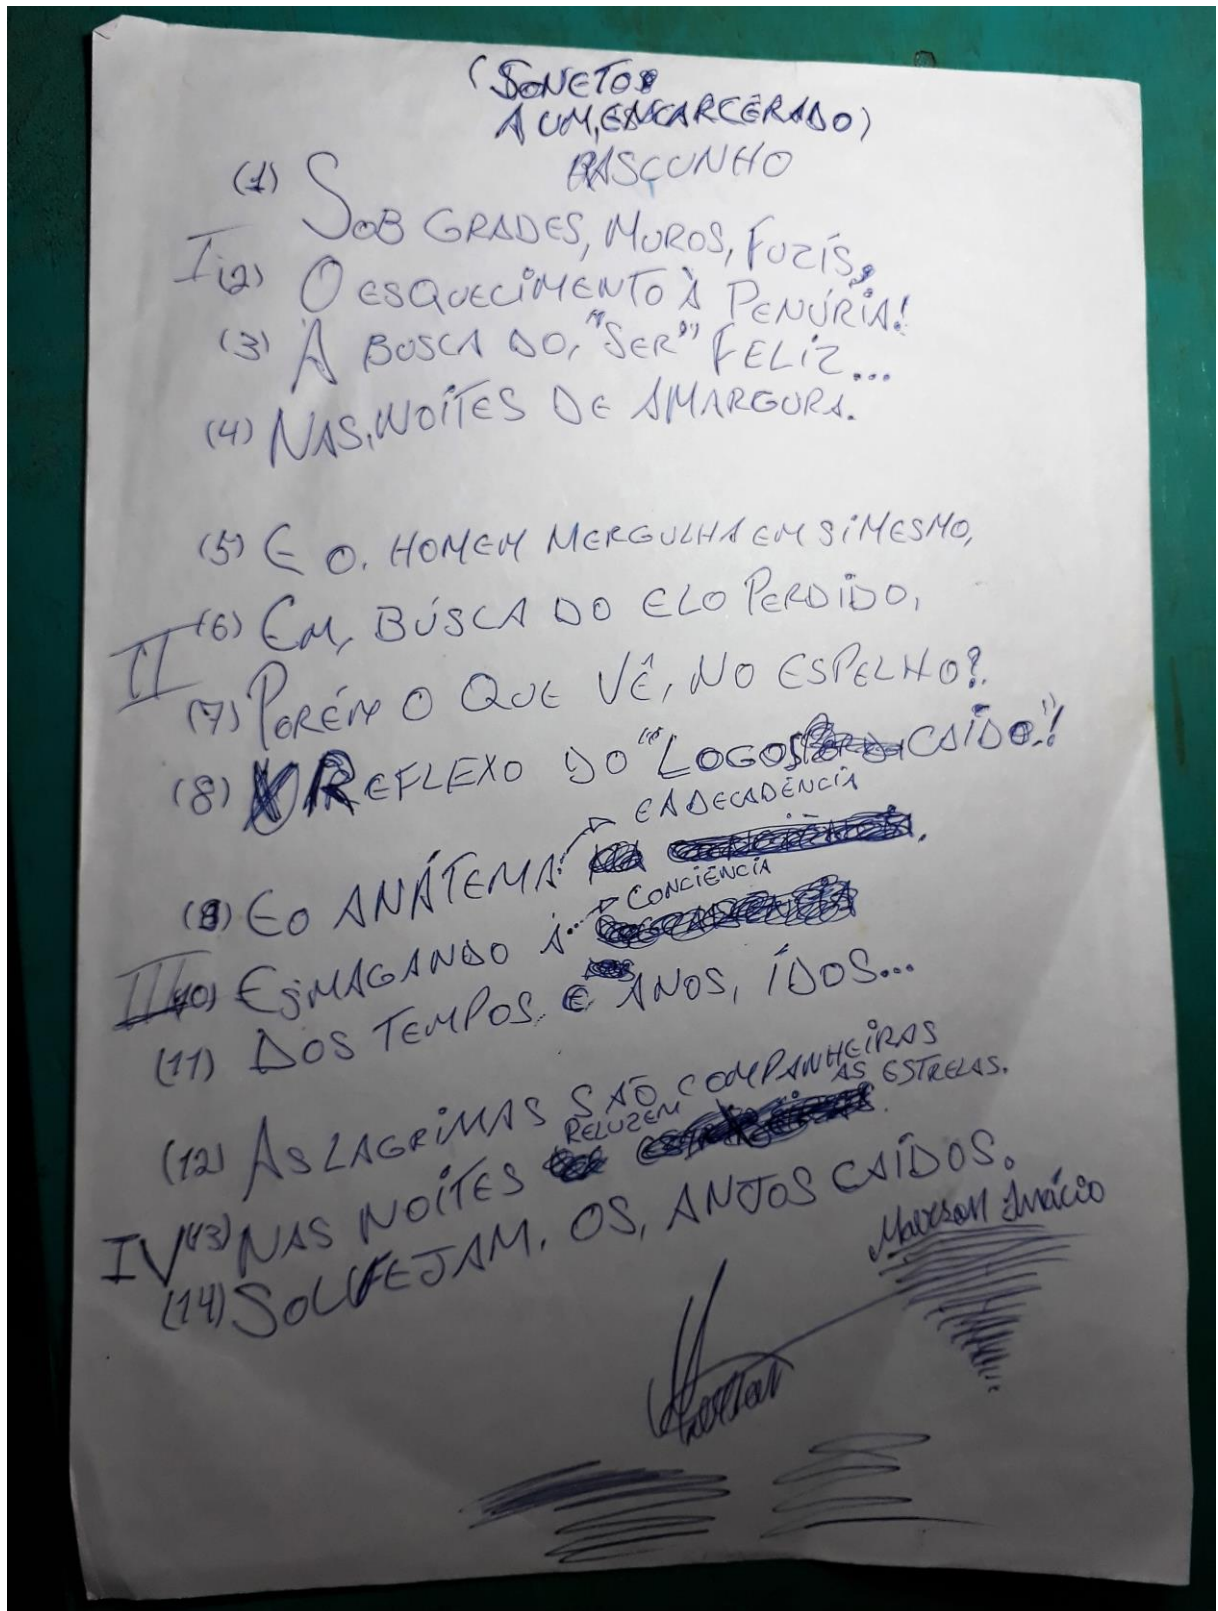 (SONETO
A UM, ENCARCERADO)
RASCUNHO
(1) SOB GRADES, MUROS, FUZÍS,
I (2) O ESQUECIMENTO À PENÚRIA!
(3) A BUSCA DO, "SER" FELIZ...
(4) NAS, NOITES DE AMARGURA.
(5) E O. HOMEM MERGULHA EM SI MESMO,
II (6) EM, BÚSCA DO ELO PERDIDO,
(7) PORÉM O QUE VÊ, NO ESPELHO?
(8) REFLEXO DO "LOGOS CAÍDO"!
E A DECADÊNCIA
(9) E O ANÁTEMA
CONCIÊNCIA
III (10) ESMAGANDO A
(11) DOS TEMPOS E ANOS, ÍDOS...
(12) AS LAGRIMAS SÃO COMPANHEIRAS
RELUZEM AS ESTRELAS.
IV (13) NAS NOITES
(14) SOLFEJAM. OS, ANJOS CAÍDOS.
Inácio